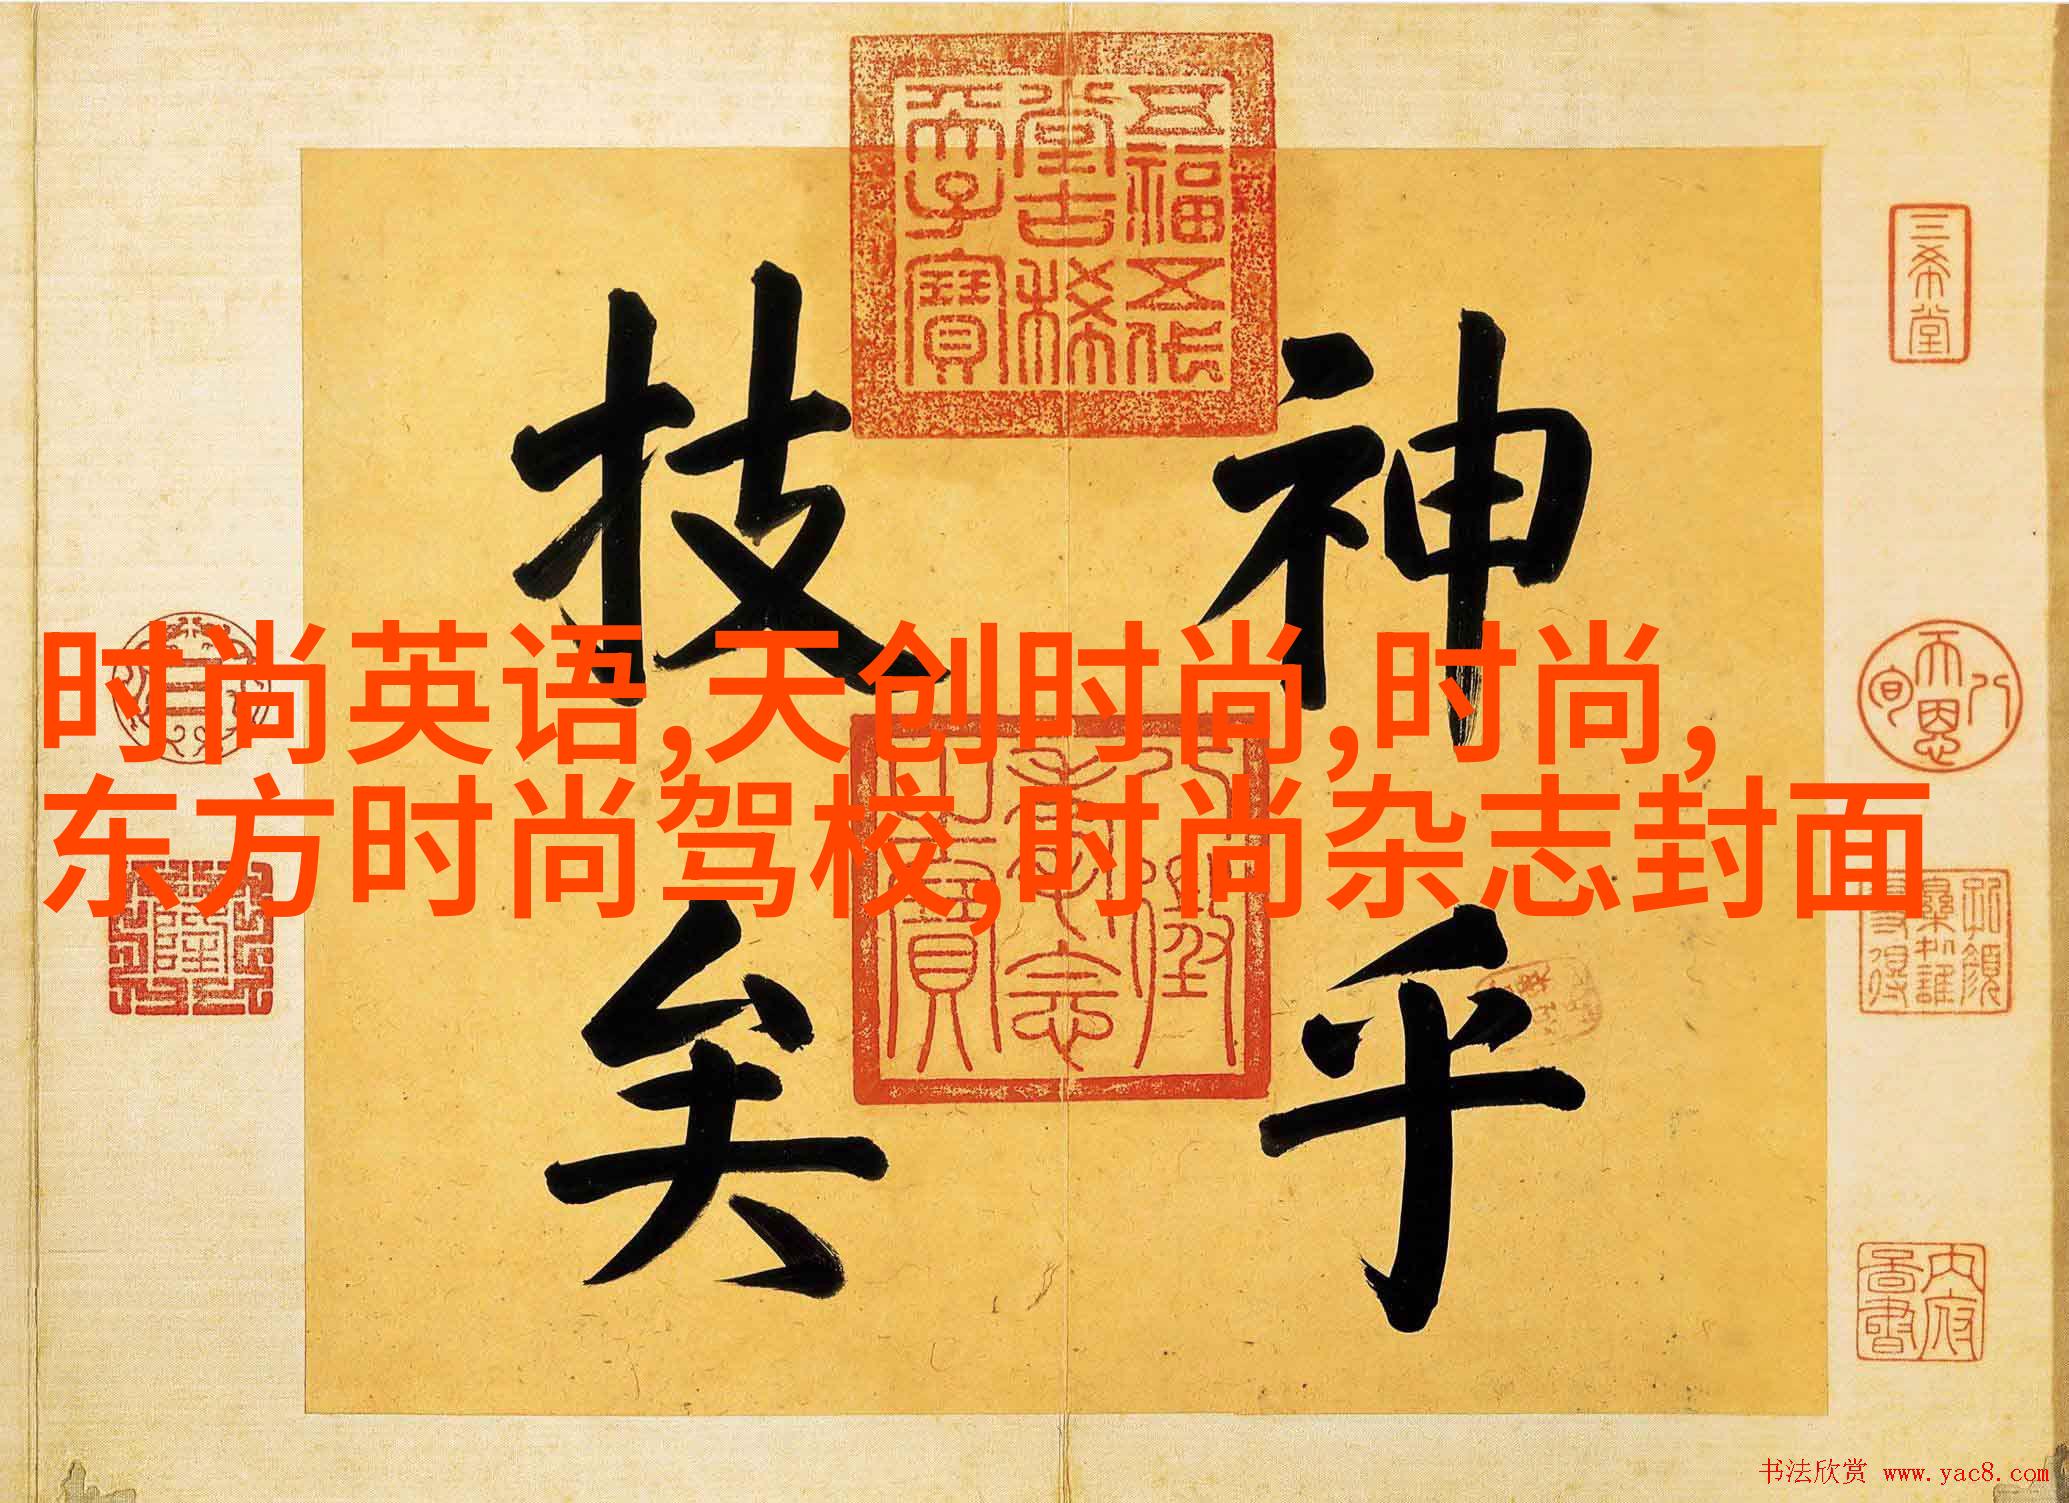 神乎
技矣
時尚英语,天创时尚,时尚,
东方时尚驾校,时尚杂志封面
五福五代
堂古稀
天子寶
八徵
耄念
之寶
三希堂
天恩八旬
内府
书法欣赏 www.yac8.com